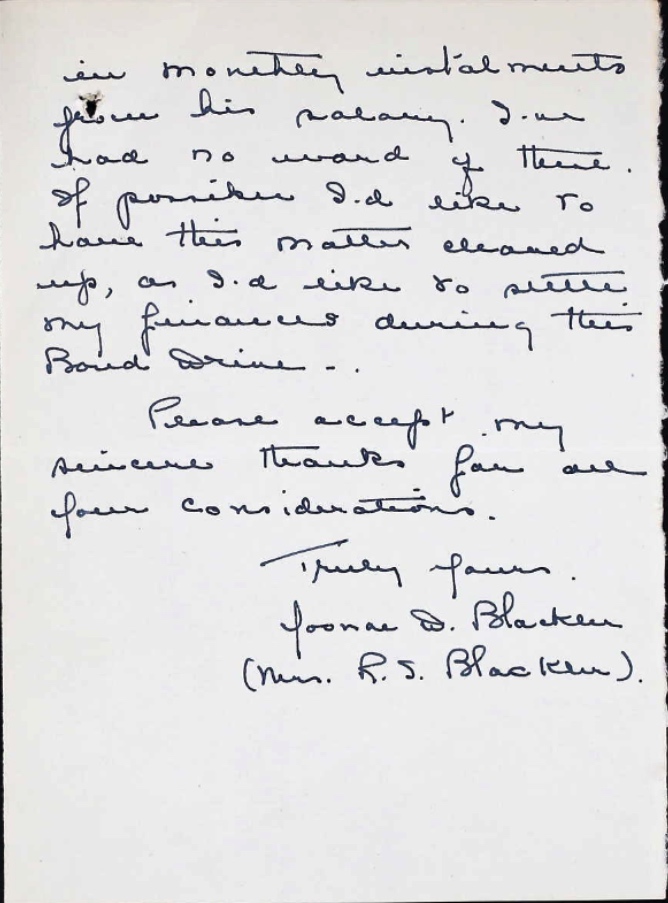 in monthly instalments
from his salary. I've
had no word of these.
If possible I'd like to
have this matter cleared
up, as I'd like to settle
my finances during this
Bond Drive -.
Please accept my
sincere thanks for all
your considerations.
Truly yours.
Yvonne D. Blackler
(Mrs. R. S. Blackler).